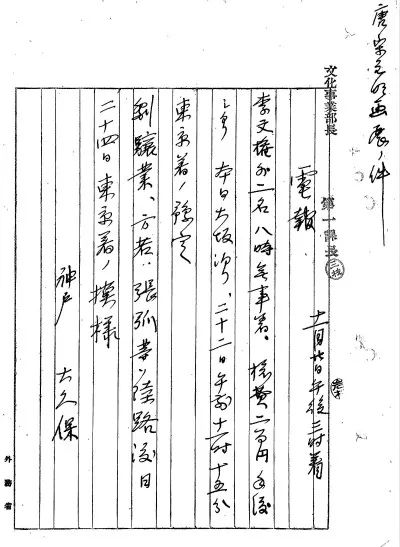 唐宋元明画展ノ件
文化事業部長
第一課長
電報
十一月廿日午後三時着
李文権外二名八時無事着、桟費二百円手渡
シタ 本日大阪泊、二十二日午前十一時十五分
東京着ノ豫定
劉驤業、方若、張弧等ハ陸路後日
二十四日東京着ノ模様
神戸 大久保
外務省